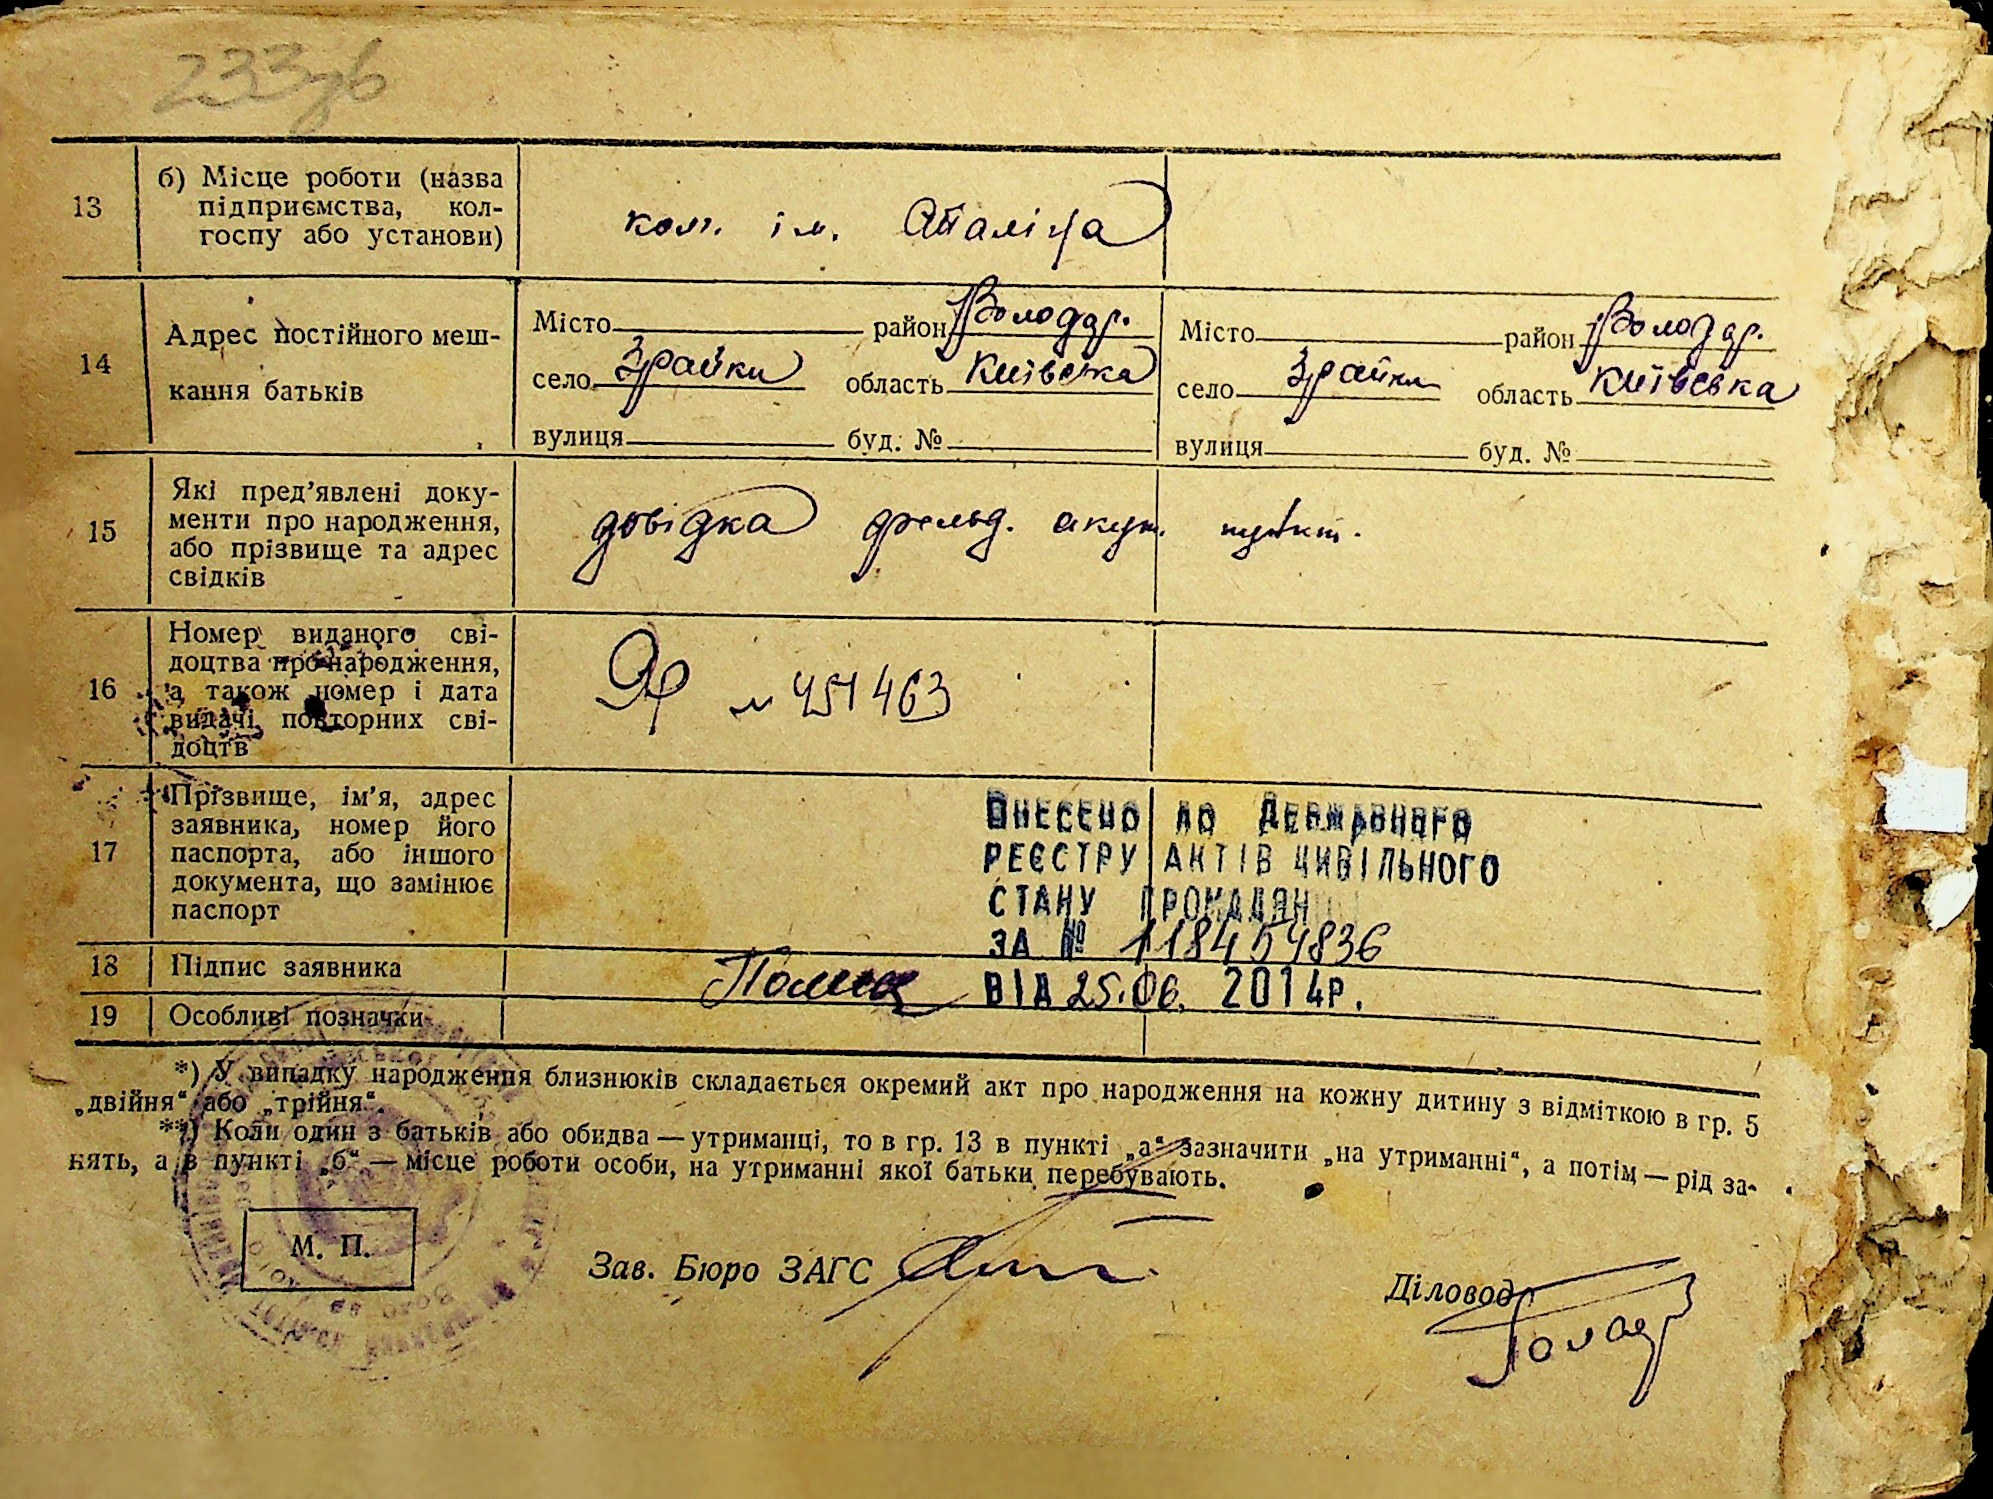 233зв
13
б) Місце роботи (назва
підприємства, кол-
госпу або установи)
кол. ім. Сталіна
14
Адрес постійного меш-
кання батьків
Місто район Володар.
село Зрайки область Київська
вулиця буд. №
Місто район Володар.
село Зрайки область Київська
вулиця буд. №
15
Які пред’явлені доку-
менти про народження,
або прізвище та адрес
свідків
довідка фельд. акуш. пункт.
16
Номер виданого сві-
доцтва про народження,
а також номер і дата
видачі повторних сві-
доцтв
№ 451463
17
Прізвище, ім’я, адрес
заявника, номер його
паспорта, або іншого
документа, що замінює
паспорт
ВНЕСЕНО ДО ДЕРЖАВНОГО
РЕЄСТРУ АКТІВ ЦИВІЛЬНОГО
СТАНУ ГРОМАДЯН
ЗА № 118454836
ВІД 25.06. 2014р.
18
Підпис заявника
19
Особливі позначки
*) У випадку народження близнюків складається окремий акт про народження на кожну дитину з відміткою в гр. 5
„двійня“ або „трійня“.
**) Коли один з батьків або обидва — утриманці, то в гр. 13 в пункті „а“ зазначити „на утриманні“, а потім — рід за-
нять, а в пункті „б“ — місце роботи особи, на утриманні якої батьки перебувають.
М. П.
Зав. Бюро ЗАГС
Діловод